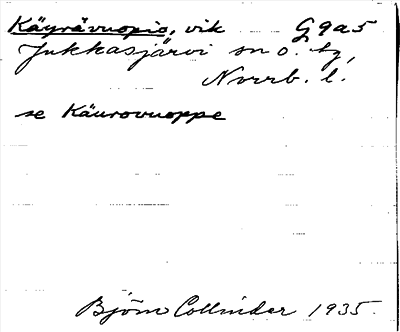 Käyrävuopio, vik G9a5
Jukkasjärvi sn o. tg,
Norrb. l.
se Käurovuoppe
Björn Collinder 1935.